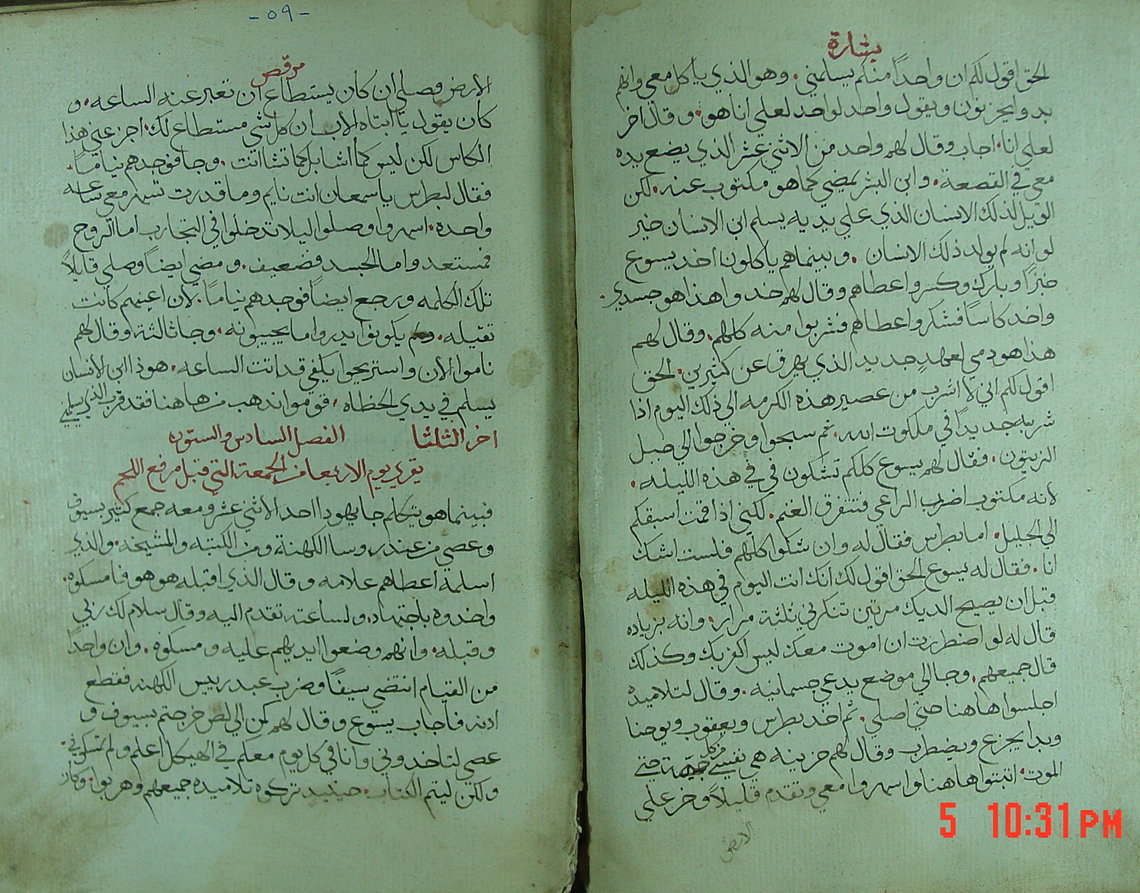 بشارة
الحق اقول لكم ان واحداً منكم يسلمني. وهو الذي ياكل معي وانهم
بدوا يحزنون ويقول واحد لواحد لعلي انا هو. وقال اخر
لعلي انا. اجاب وقال لهم واحد من الاثني عشر الذي يضع يده
معي في القصعة. وابن البشر يمضي كما هو مكتوب عنه. لكن
الويل لذلك الانسان الذي علي يديه يسلم ابن الانسان خير
لو انه لم يولد ذلك الانسان. وبينما هم ياكلون أخد يسوع
خبزاً وبارك وكسر واعطاهم وقال لهم خدوا هذا هو جسدي.
واخد كاساً فشكر واعطاهم فشربوا منه كلهم. وقال لهم
هذا هو دمي لعهد جديد الذي يهرق عن كثيرين. الحق
اقول لكم اني لا اشرب من عصير هذه الكرمه الي ذلك اليوم اذا
شربه جديداً في ملكوت الله. ثم سبحوا وخرجوا الي جبل
الزيتون. فقال لهم يسوع كلكم تشكون في في هذه الليله.
لانه مكتوب اضرب الراعي فتتفرق الغنم. لكني اذا قمت اسبقكم
الي الجليل. اما بطرس فقال له وان شكوا كلهم فلست اشك
انا. فقال له يسوع الحق اقول لك انك انت اليوم في هذه الليله
قبل ان يصيح الديك مرتين تنكرني ثلثة مرار. وانه بزياده
قال له لو اضطررت ان اموت معك ليس اكفر بك وكذلك
قال جميعهم. وجا الي موضع يدعي جسمانيه. وقال لتلاميده
اجلسوا هاهنا حتي اصلي. ثم اخد بطرس ويعقوب ويوحنا
وبدا يجزع ويضطرب وقال لهم حزينه هي نفسي حتي
الموت. اثبتوا هاهنا واسهروا معي وتقدم قليلاً وخر علي
الارض
-٥٩-
مرقص
الارض وصلي ان كان يستطاع ان تعبر عنه الساعه. و
كان يقول يا ابتاه الاب ان كل شي مستطاع لك. اجز عني هذا
الكاس لكن ليس كما اشا بل كما تشا انت. وجا فوجدهم نياماً.
فقال لبطرس ياسمعان انت نايم وما قدرت تسهر معي ساعه
واحده. اسهروا وصلوا ليلا تدخلوا في التجارب اما الروح
فمستعد واما الجسد فضعيف. ومضي ايضاً وصلي قايلاً
تلك الكلمه ورجع ايضاً فوجدهم نياماً. لان اعينهم كانت
ثقيله. ولم يكونوا يدروا ما يجيبونه. وجا ثالثة وقال لهم
ناموا الان واستريحوا يكفي قد اتت الساعه. هوذا ابن الانسان
يسلم في يدي الخطاه. قوموا ندهب من هاهنا فقد قرب الذي يسلمني
اخر الثلثا الفصل السادس والستون
يقري يوم الاربعا من الجمعة التي قبل مرفع اللحم
فبينما هو يتكلم جا يهودا احد الاثني عشر ومعه جمع كثير بسيوف
وعصي من عند روسا الكهنة ومن الكتبه والمشيخه. والذي
اسلمه اعطاهم علامه وقال الذي اقبله هو هو فامسكوه.
واخدوه باجتهاد. ولساعته تقدم اليه وقال سلام لك ربي
وقبله. وانهم وضعوا ايديهم عليه ومسكوه. وان واحداً
من القيام انتضي سيفاً وضرب عبد رييس الكهنه فقطع
ادنه فاجاب يسوع وقال لهم كمن الي لص خرجتم بسيوف و
عصي لتاخدوني وانا في كل يوم معكم في الهيكل اعلم ولم تمسكوني.
ولكن ليتم الكتاب. حينيد تركوه تلاميده جميعهم وهربوا. وكان
5 10:31PM